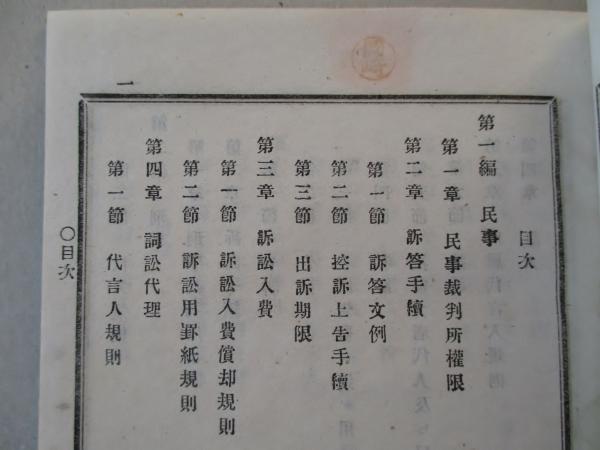 目次
第一編 民事
第一章 民事裁判所權限
第二章 訴答手續
第一節 訴答文例
第二節 控訴上告手續
第三節 出訴期限
第三章 訴訟入費
第一節 訴訟入費償却規則
第二節 訴訟用罫紙規則
第四章 詞訟代理
第一節 代言人規則
〇目次
一